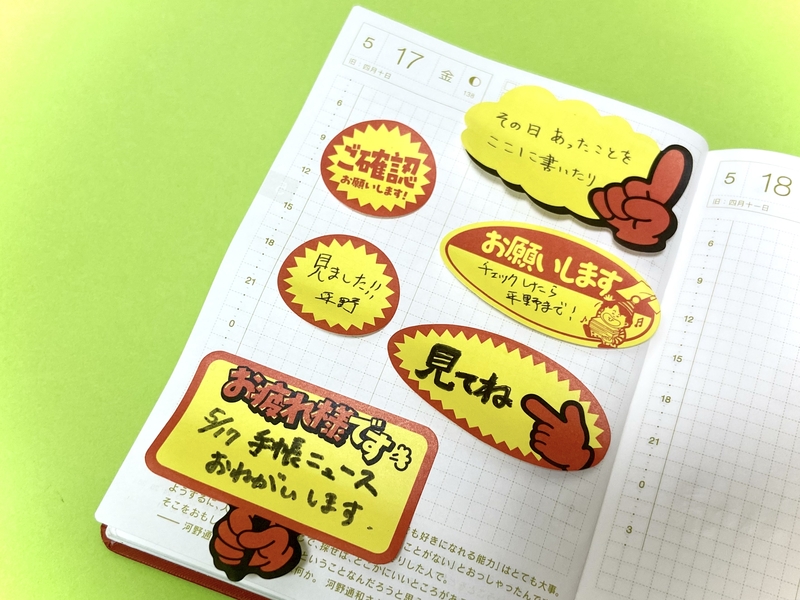 5
17
金
旧：四月十日
138
6
9
12
15
18
21
0
ご確認
お願いします!
その日 あったことを
ここに書いたり
見ました!!
平野
お願いします
チェックしたら
平野まで!
見てね
お疲れ様です
5/17 手帳ニュース
おねがいします.
ようするに、
も好きになれる能力」はとても大事。
そこをおもし
で、探せば、どこかにいいところがあ
ことがない」とおっしゃったんで
りした人で。
── 河野通
ということなんだろうと思
何か。 河野通和さ
5
18
旧：四月十一日
6
9
12
15
18
21
0
3